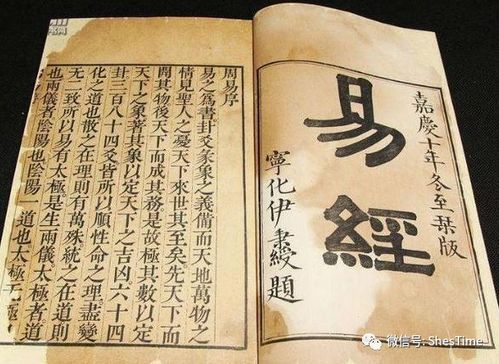 嘉慶十年冬至琹版
易經
寧化伊秉綬題
周易序
易之爲書卦爻彖象之義備而天地萬物之
情見聖人之憂天下來世其至矣先天下而
開其物後天下而成其務是故極其數以定
天下之象著其象以定天下之吉凶六十四
卦三百八十四爻皆所以順性命之理盡變
化之道也散之在理則有萬殊統之在道則
无二致所以易有太極是生兩儀太極者道
也兩儀者陰陽也陰陽一道也太極无極也
微信号: ShesTime